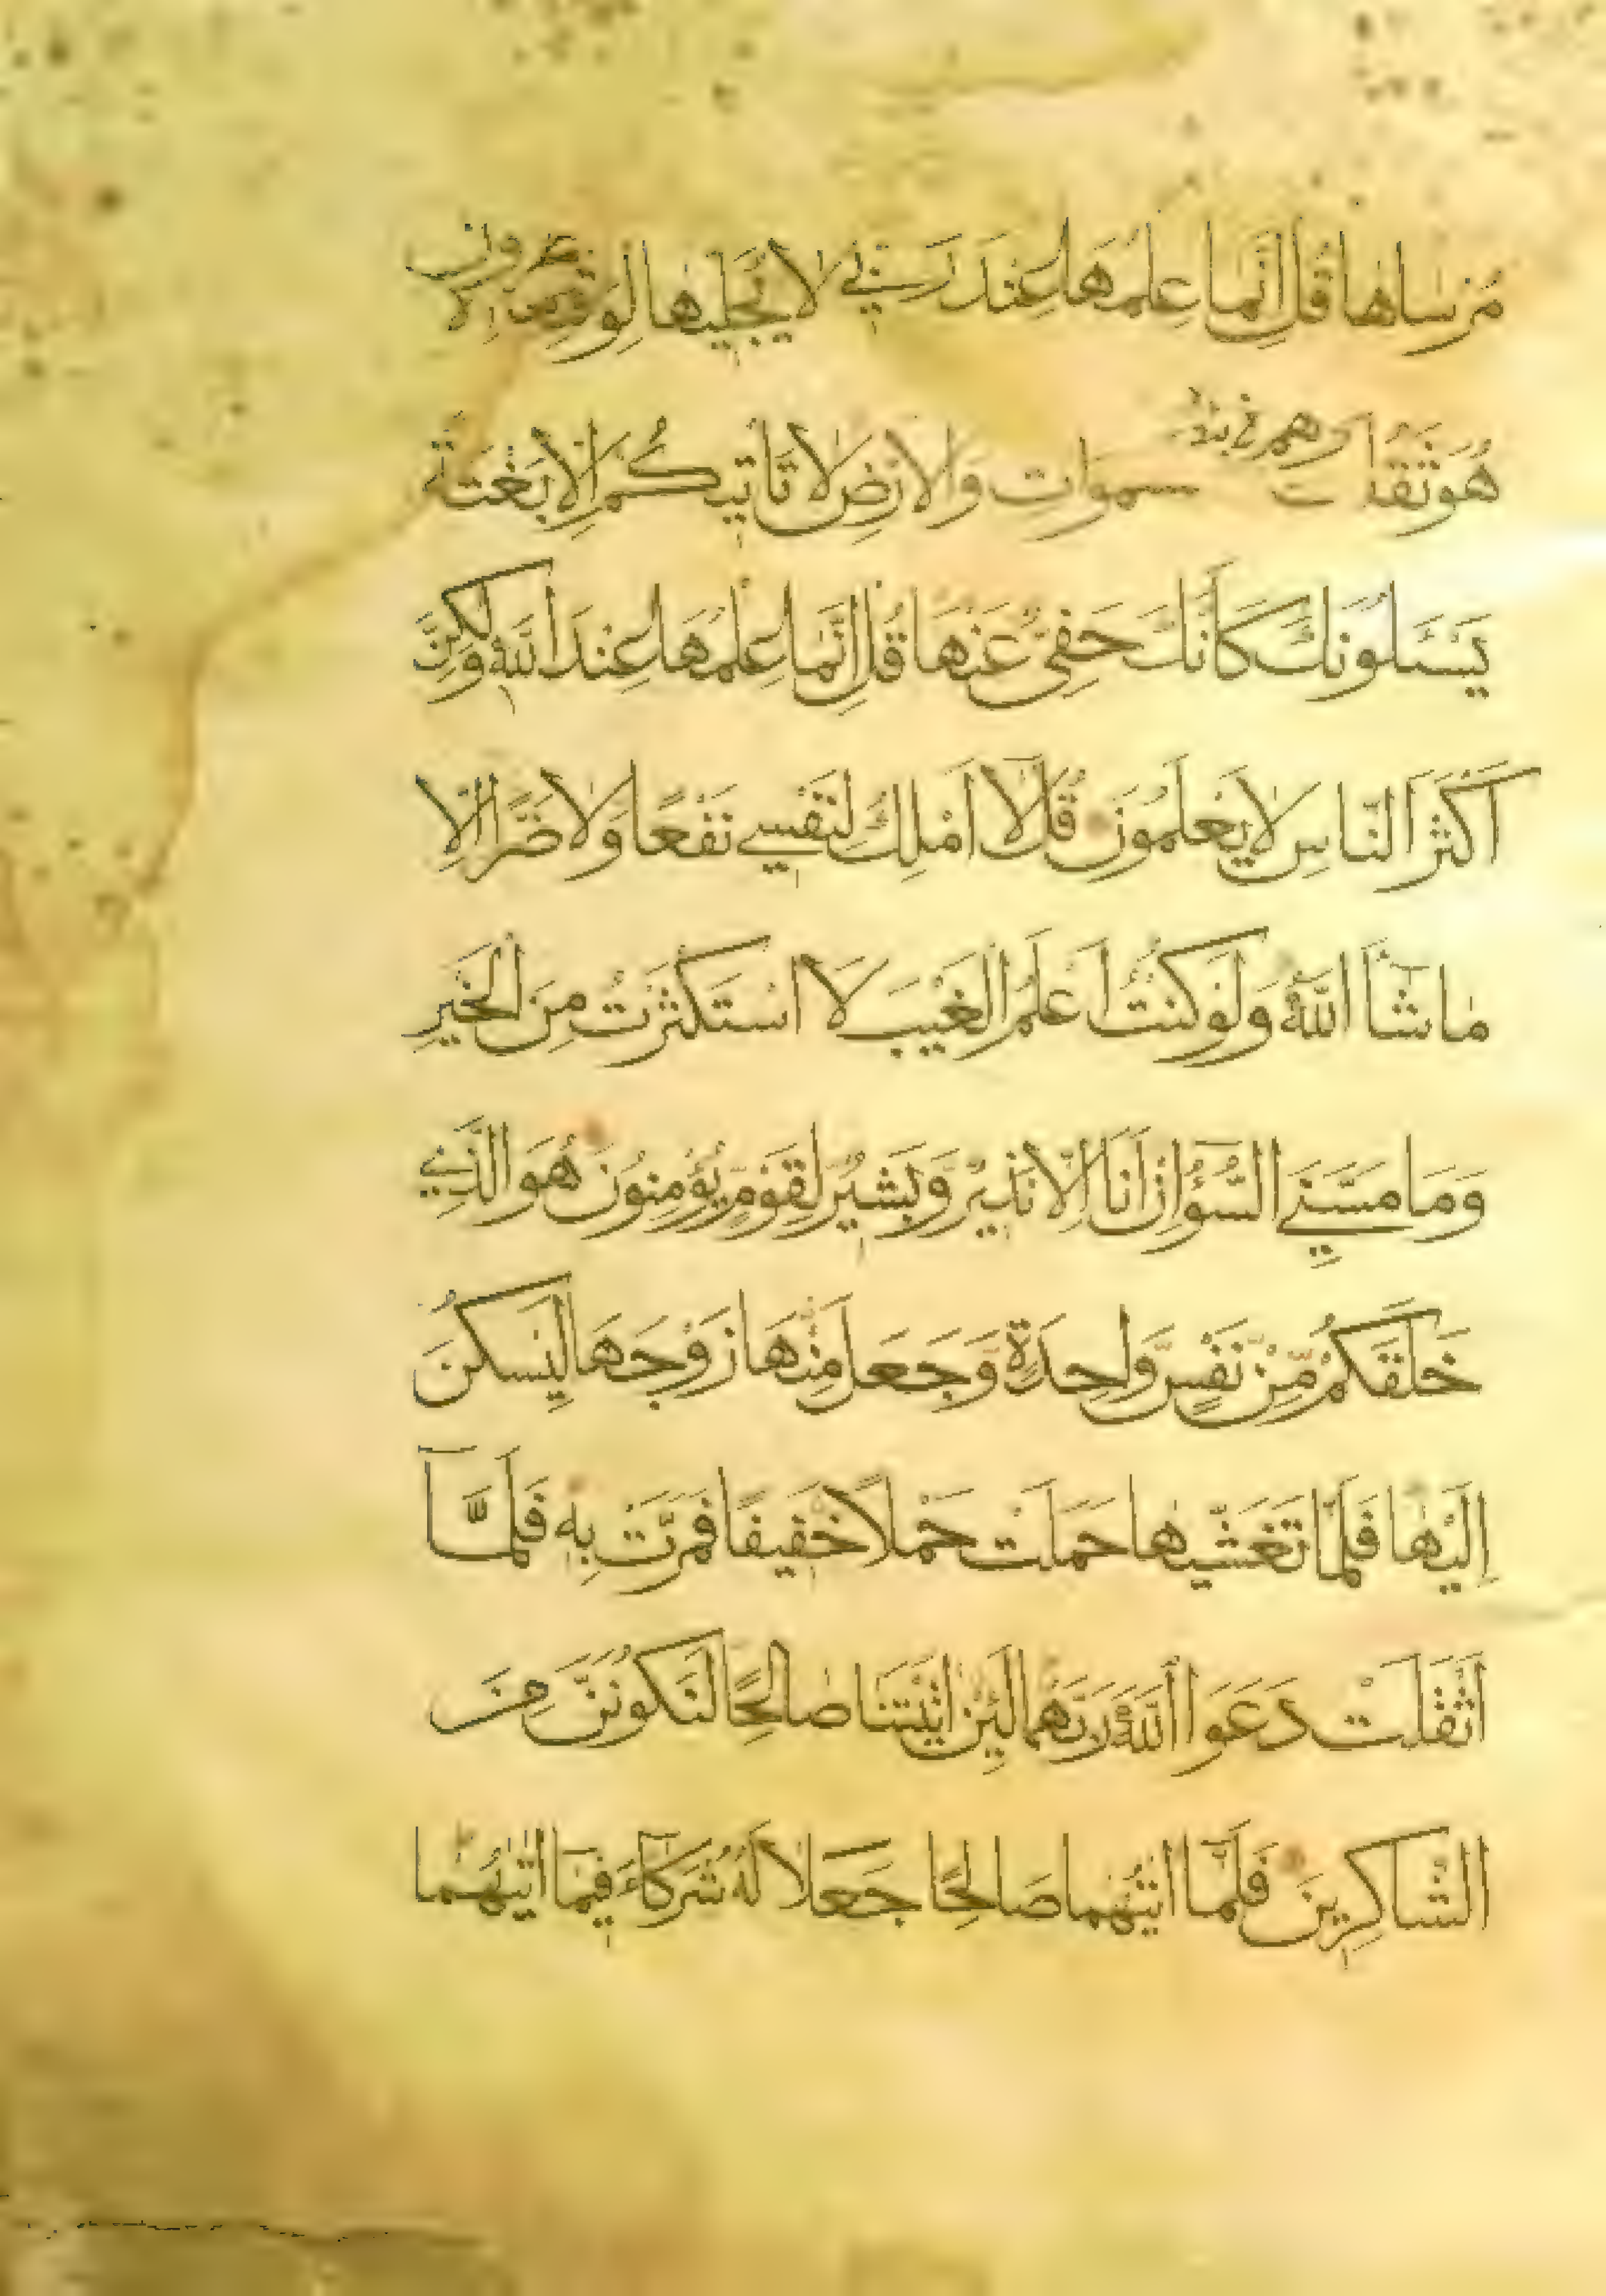 مُرْسَاهَا قُلْ اِنَّمَا عِلْمُهَا عِنْدَ رَبِّي لَا يُجَلِّيهَا لِوَقْتِهَا اِلَّا
هُوَ ثَقُلَتْ سموَاتِ وَالْاَرْضِ لَا تَأْتِيكُمْ اِلَّا بَغْتَةً
يَسْـَٔلُونَكَ كَاَنَّكَ حَفِيٌّ عَنْهَا قُلْ اِنَّمَا عِلْمُهَا عِنْدَ اللّٰهِ وَلٰكِنَّ
اَكْثَرَ النَّاسِ لَا يَعْلَمُونَ قُلْ لَا اَمْلِكُ لِنَفْسِي نَفْعًا وَلَا ضَرًّا اِلَّا
مَا شَآءَ اللّٰهُ وَلَوْ كُنْتُ اَعْلَمُ الْغَيْبَ لَا اسْتَكْثَرْتُ مِنَ الْخَيْرِ
وَمَا مَسَّنِيَ السُّوٓءُ اِنْ اَنَا اِلَّا نَذِيرٌ وَّبَشِيرٌ لِقَوْمٍ يُؤْمِنُونَ هُوَ الَّذِي
خَلَقَكُمْ مِّنْ نَفْسٍ وَّاحِدَةٍ وَّجَعَلَ مِنْهَا زَوْجَهَا لِيَسْكُنَ
اِلَيْهَا فَلَمَّا تَغَشّٰيهَا حَمَلَتْ حَمْلًا خَفِيفًا فَمَرَّتْ بِهٖ فَلَمَّآ
اَثْقَلَتْ دَعَوَا اللّٰهَ رَبَّهُمَا لَئِنْ اٰتَيْتَنَا صَالِحًا لَنَكُونَنَّ مِنَ
الشَّاكِرِينَ فَلَمَّآ اٰتٰيهُمَا صَالِحًا جَعَلَا لَهُ شُرَكَآءَ فِيمَا اٰتٰيهُمَا